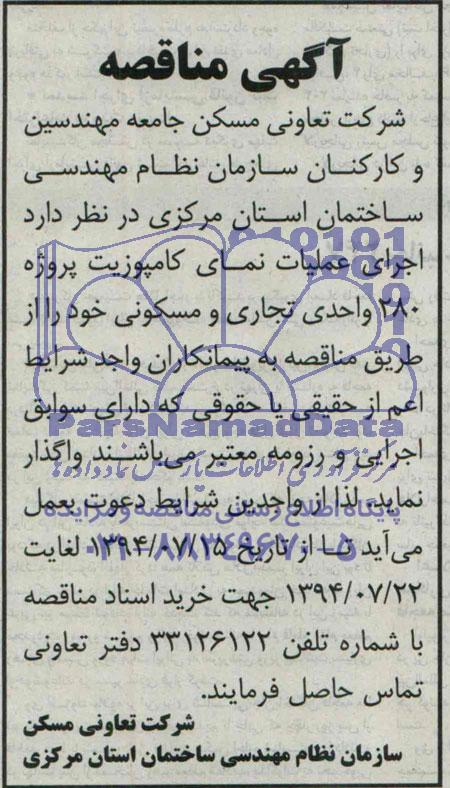 آگهی مناقصه
شرکت تعاونی مسکن جامعه مهندسین
و کارکنان سازمان نظام مهندسی
ساختمان استان مرکزی در نظر دارد
اجرای عملیات نمای کامپوزیت پروژه
۲۸۰ واحدی تجاری و مسکونی خود را از
طریق مناقصه به پیمانکاران واجد شرایط
اعم از حقیقی یا حقوقی که دارای سوابق
ParsNamadData
اجرایی و رزومه معتبر می‌باشند واگذار
مرکز فرآوری اطلاعات پارس نماد داده‌ها
نماید، لذا از واجدین شرایط دعوت بعمل
پایگاه اطلاع رسانی مناقصه و مزایده
می‌آید تا از تاریخ ۱۳۹۴/۰۷/۱۵ لغایت
۰۲۱-۸۸۳۴۹۶۷۰-۵
۱۳۹۴/۰۷/۲۲ جهت خرید اسناد مناقصه
با شماره تلفن ۳۳۱۲۶۱۲۲ دفتر تعاونی
تماس حاصل فرمایند.
شرکت تعاونی مسکن
سازمان نظام مهندسی ساختمان استان مرکزی